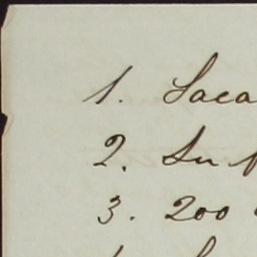 1. Saca
2. Su
3. 200